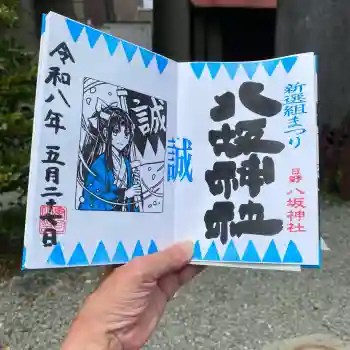 新選組まつり
八坂神社
日野 八坂神社
誠
誠
令和八年 五月二十七日